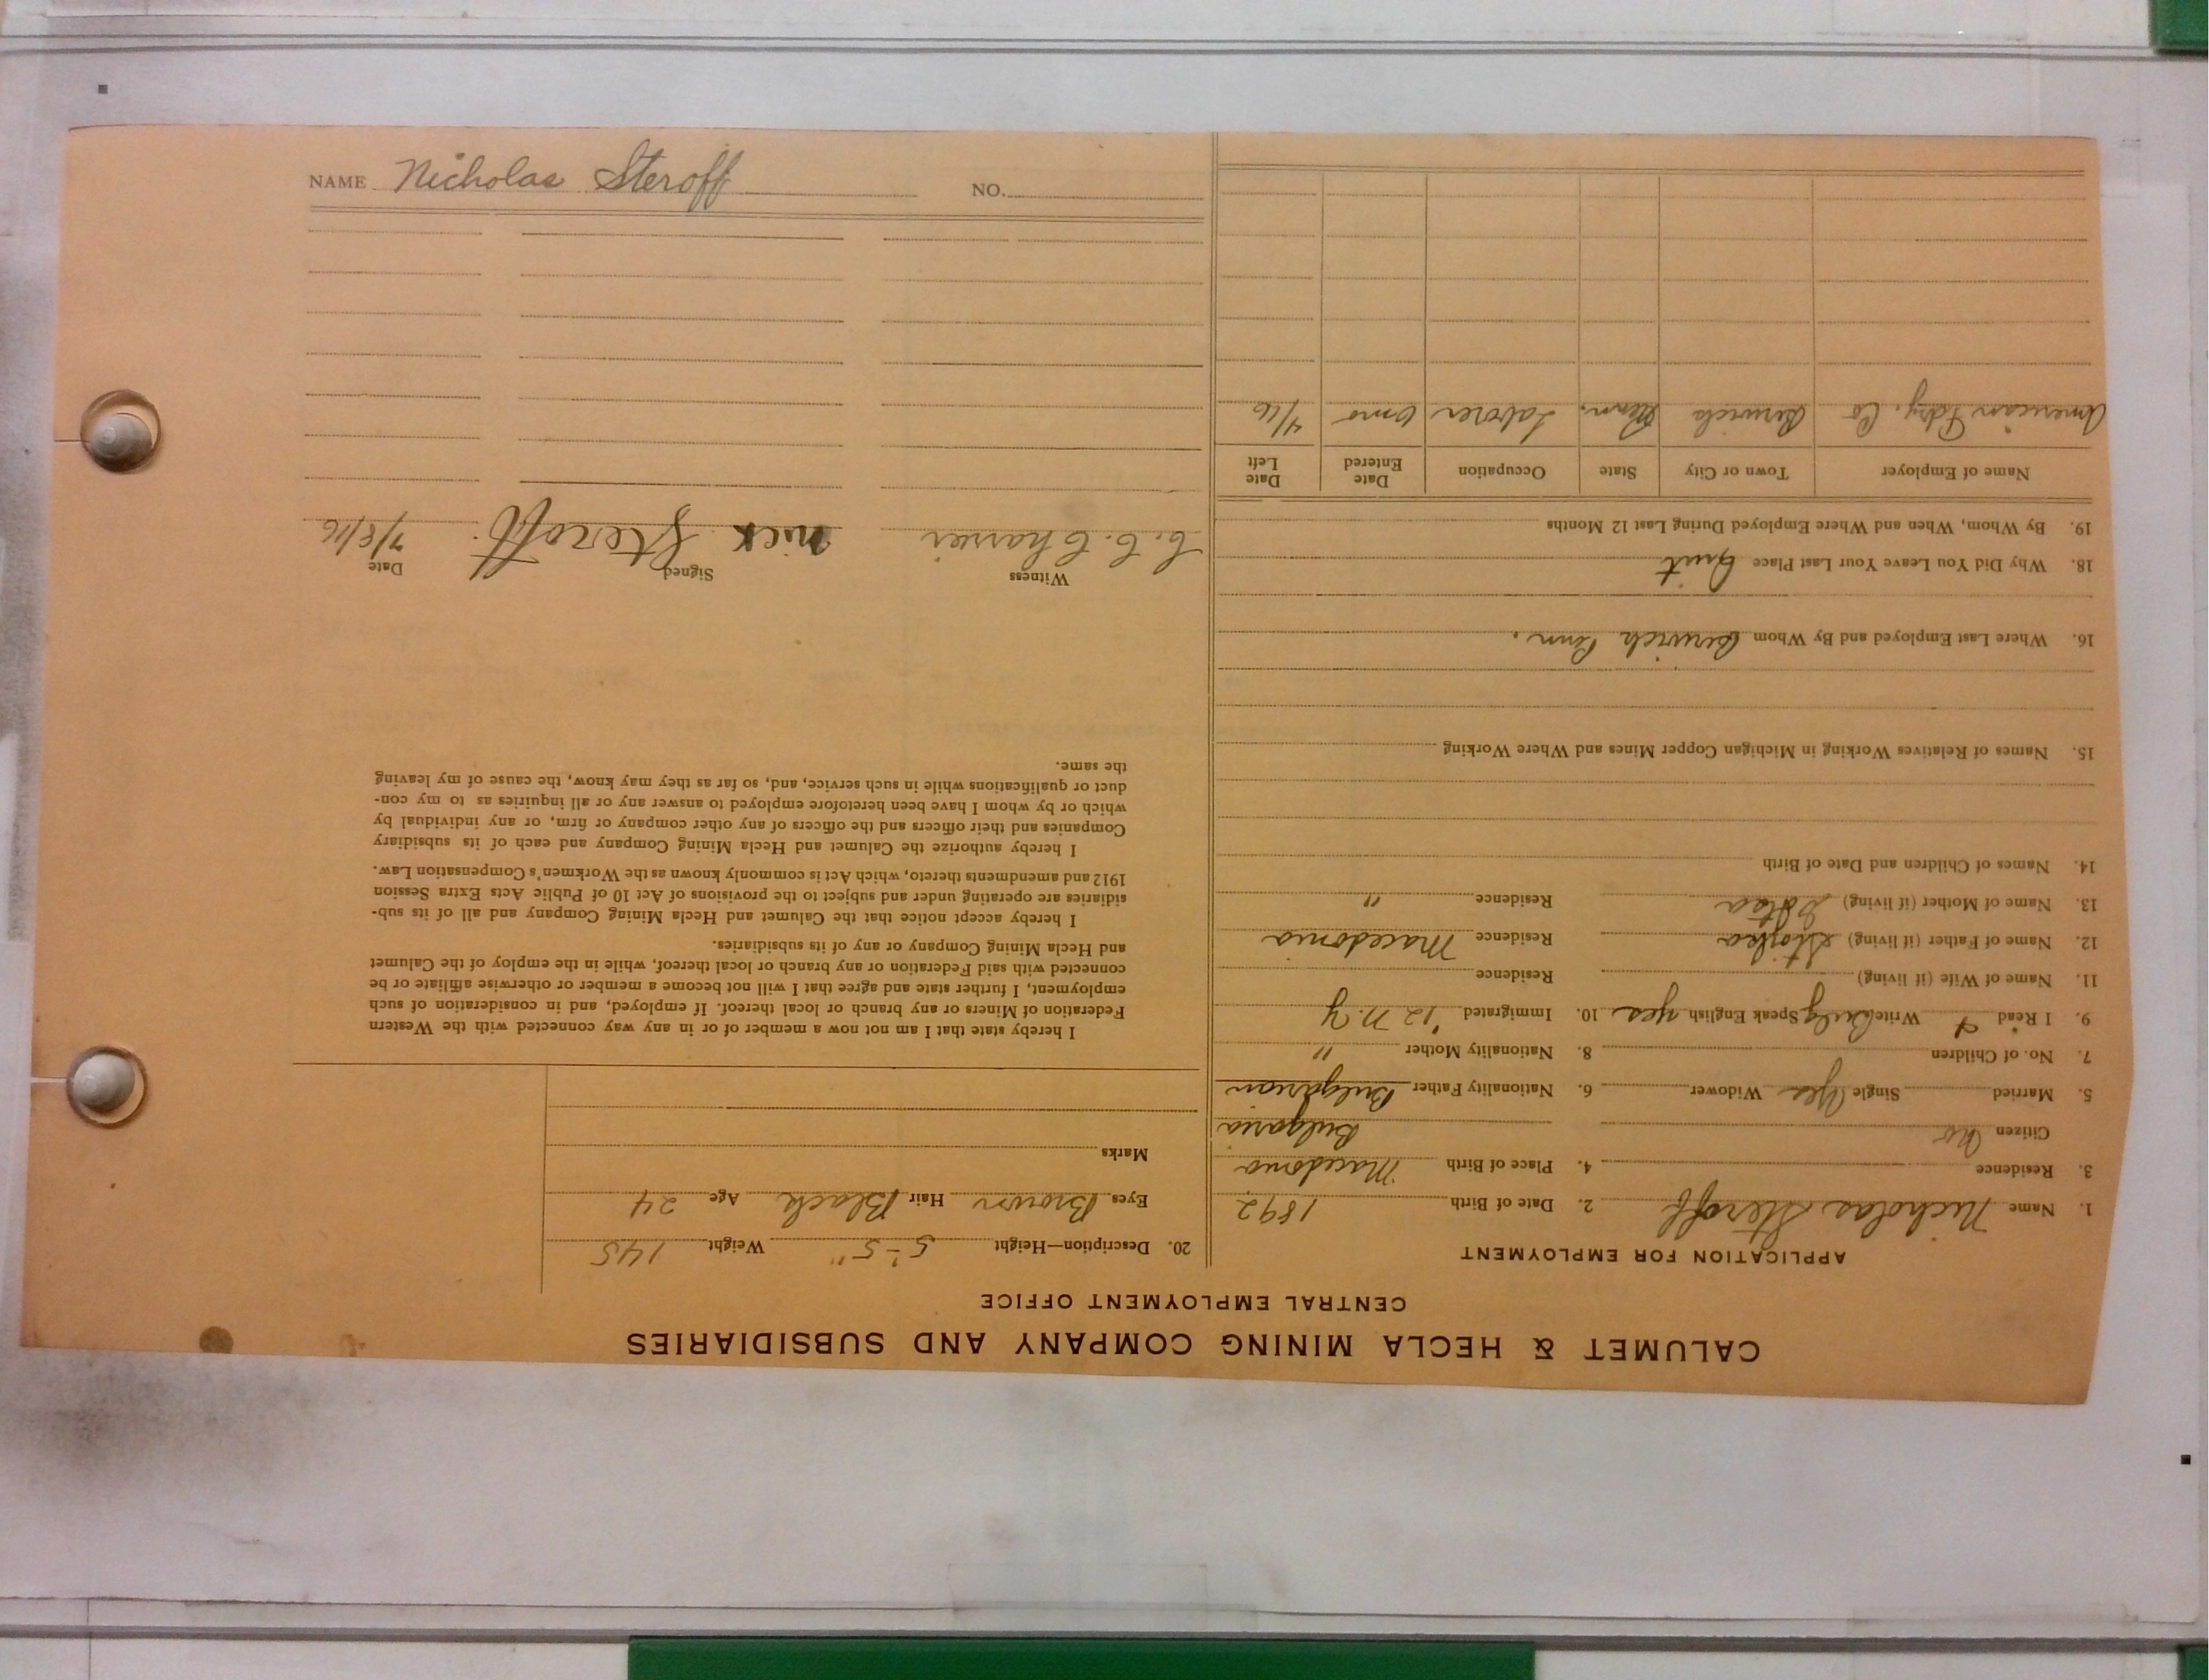 NAME Nicholas Steroff NO.
CALUMET & HECLA MINING COMPANY AND SUBSIDIARIES
CENTRAL EMPLOYMENT OFFICE
APPLICATION FOR EMPLOYMENT
1. Name Nicholas Steroff 2. Date of Birth 1892
3. Residence 4. Place of Birth Macedonia
Citizen No Bulgaria
5. Married Single Yes Widower 6. Nationality Father Bulgarian
7. No. of Children 8. Nationality Mother "
9. I Read & Write Bulg Speak English yes 10. Immigrated '12 N.Y
11. Name of Wife (if living) Residence
12. Name of Father (if living) Residence Macedonia
13. Name of Mother (if living) Residence "
14. Names of Children and Date of Birth
15. Names of Relatives Working in Michigan Copper Mines and Where Working
16. Where Last Employed and By Whom Berwick Penn.
18. Why Did You Leave Your Last Place Quit
19. By Whom, When and Where Employed During Last 12 Months
Name of Employer Town or City State Occupation Date Entered Date Left
American Fdry. Co Berwick Penn. Laborer 6mo 4/16
20. Description—Height 5-5" Weight 145
Eyes Brown Hair Black Age 24
Marks
I hereby state that I am not now a member of or in any way connected with the Western
Federation of Miners or any branch or local thereof. If employed, and in consideration of such
employment, I further state and agree that I will not become a member or otherwise affiliate or be
connected with said Federation or any branch or local thereof, while in the employ of the Calumet
and Hecla Mining Company or any of its subsidiaries.
I hereby accept notice that the Calumet and Hecla Mining Company and all of its sub-
sidiaries are operating under and subject to the provisions of Act 10 of Public Acts Extra Session
1912 and amendments thereto, which Act is commonly known as the Workmen's Compensation Law.
I hereby authorize the Calumet and Hecla Mining Company and each of its subsidiary
Companies and their officers and the officers of any other company or firm, or any individual by
which or by whom I have been heretofore employed to answer any or all inquiries as to my con-
duct or qualifications while in such service, and, so far as they may know, the cause of my leaving
the same.
Witness Signed Date
nick Steroff 7/8/16